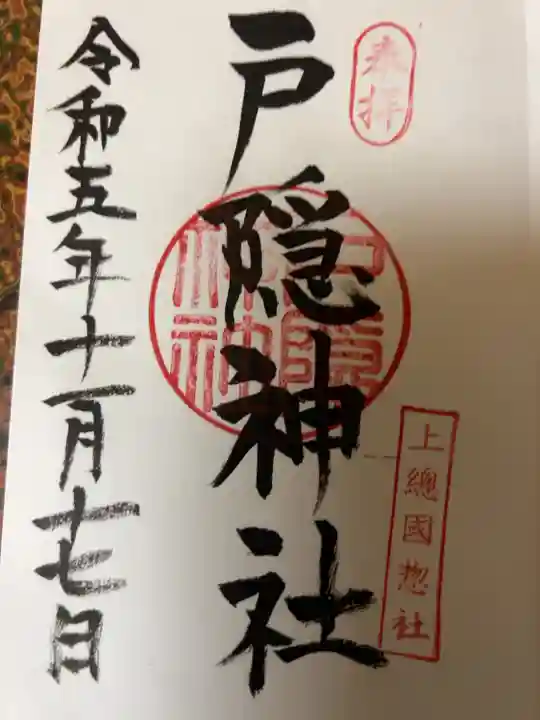 奉拝
上總國惣社
戸隠神社
戸隠神社
令和五年十一月十七日